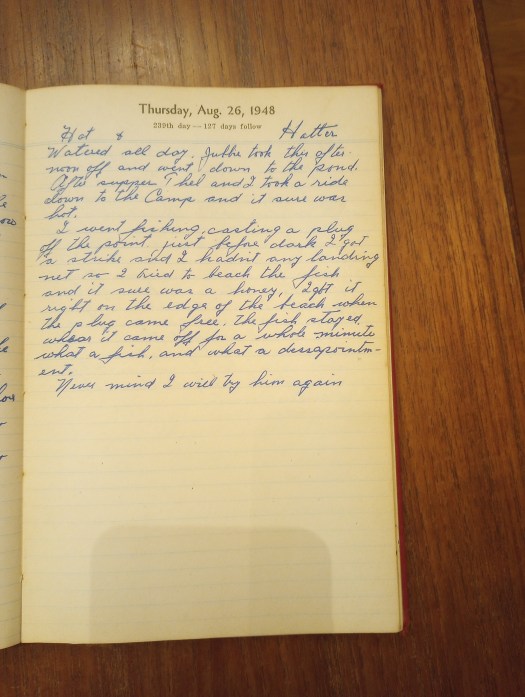 Thursday, Aug. 26, 1948
239th day — 127 days follow
Hot & Hotter
Watered all day. took this after-
noon off and went down to the pond.
After supper Thel and I took a ride
down to the Camp and it sure was
hot.
I went fishing, casting a plug
off the point, just before dark I got
a strike and I hadn't any landing
net so I tried to beach the fish
and it sure was a honey, I got it
right on the edge of the beach when
the plug came free, the fish stayed
whear it came off for a whole minute
what a fish, and what a dissapointm-
ent.
Never mind I will try him again